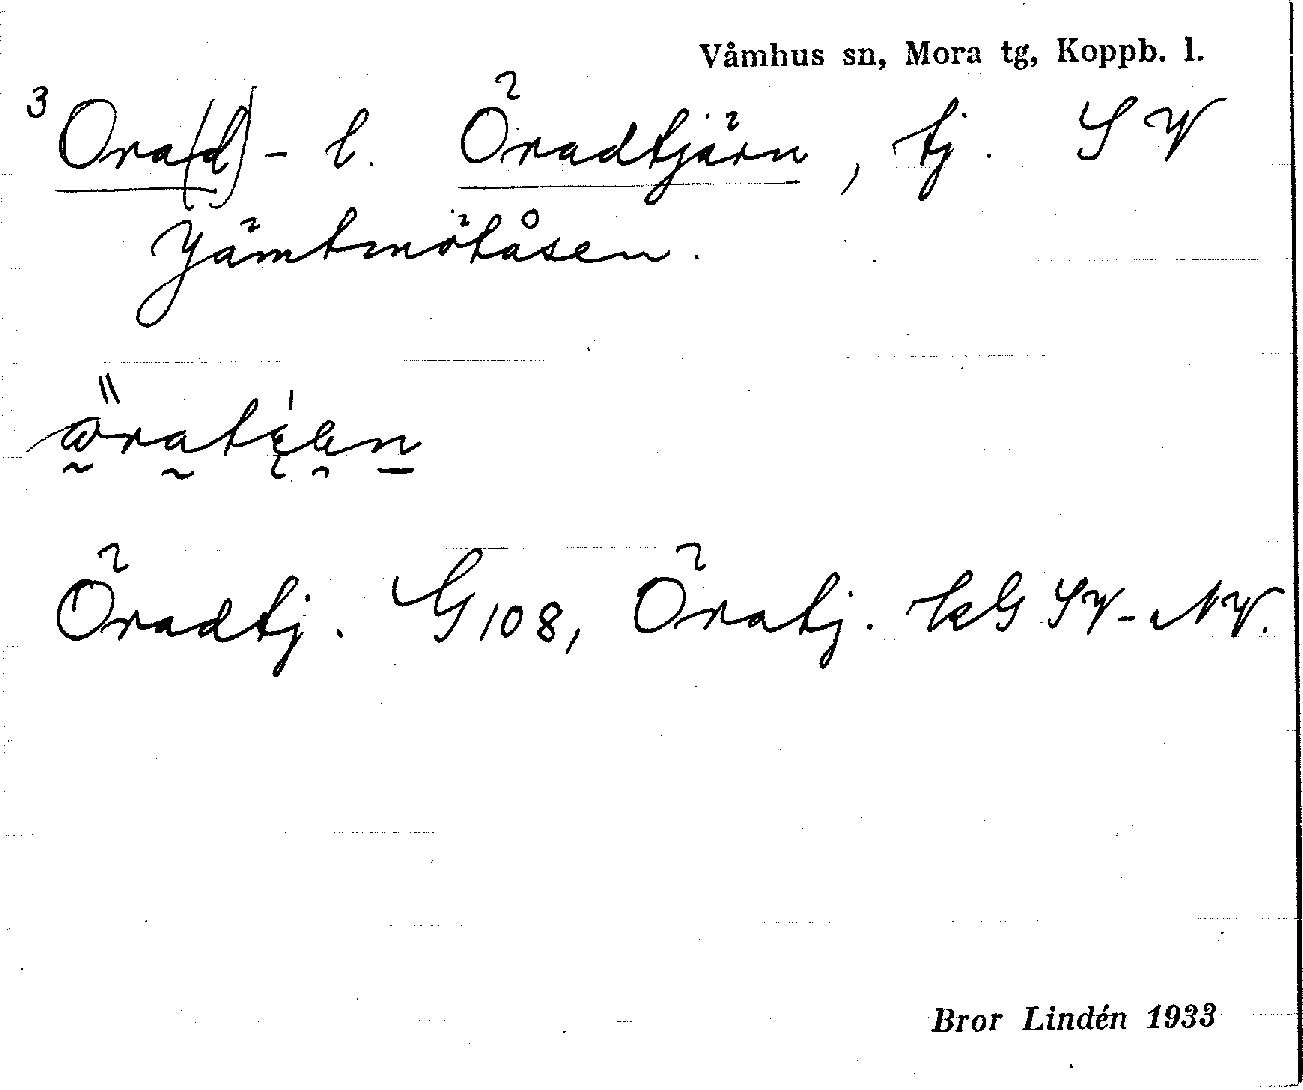 Våmhus sn, Mora tg, Koppb. l.
3 Ora(d)- l. Öradtjärn, tj. SV
Jämtmötåsen.
Öradtj. G108, Öratj. kG SV-NV.
Bror Lindén 1933